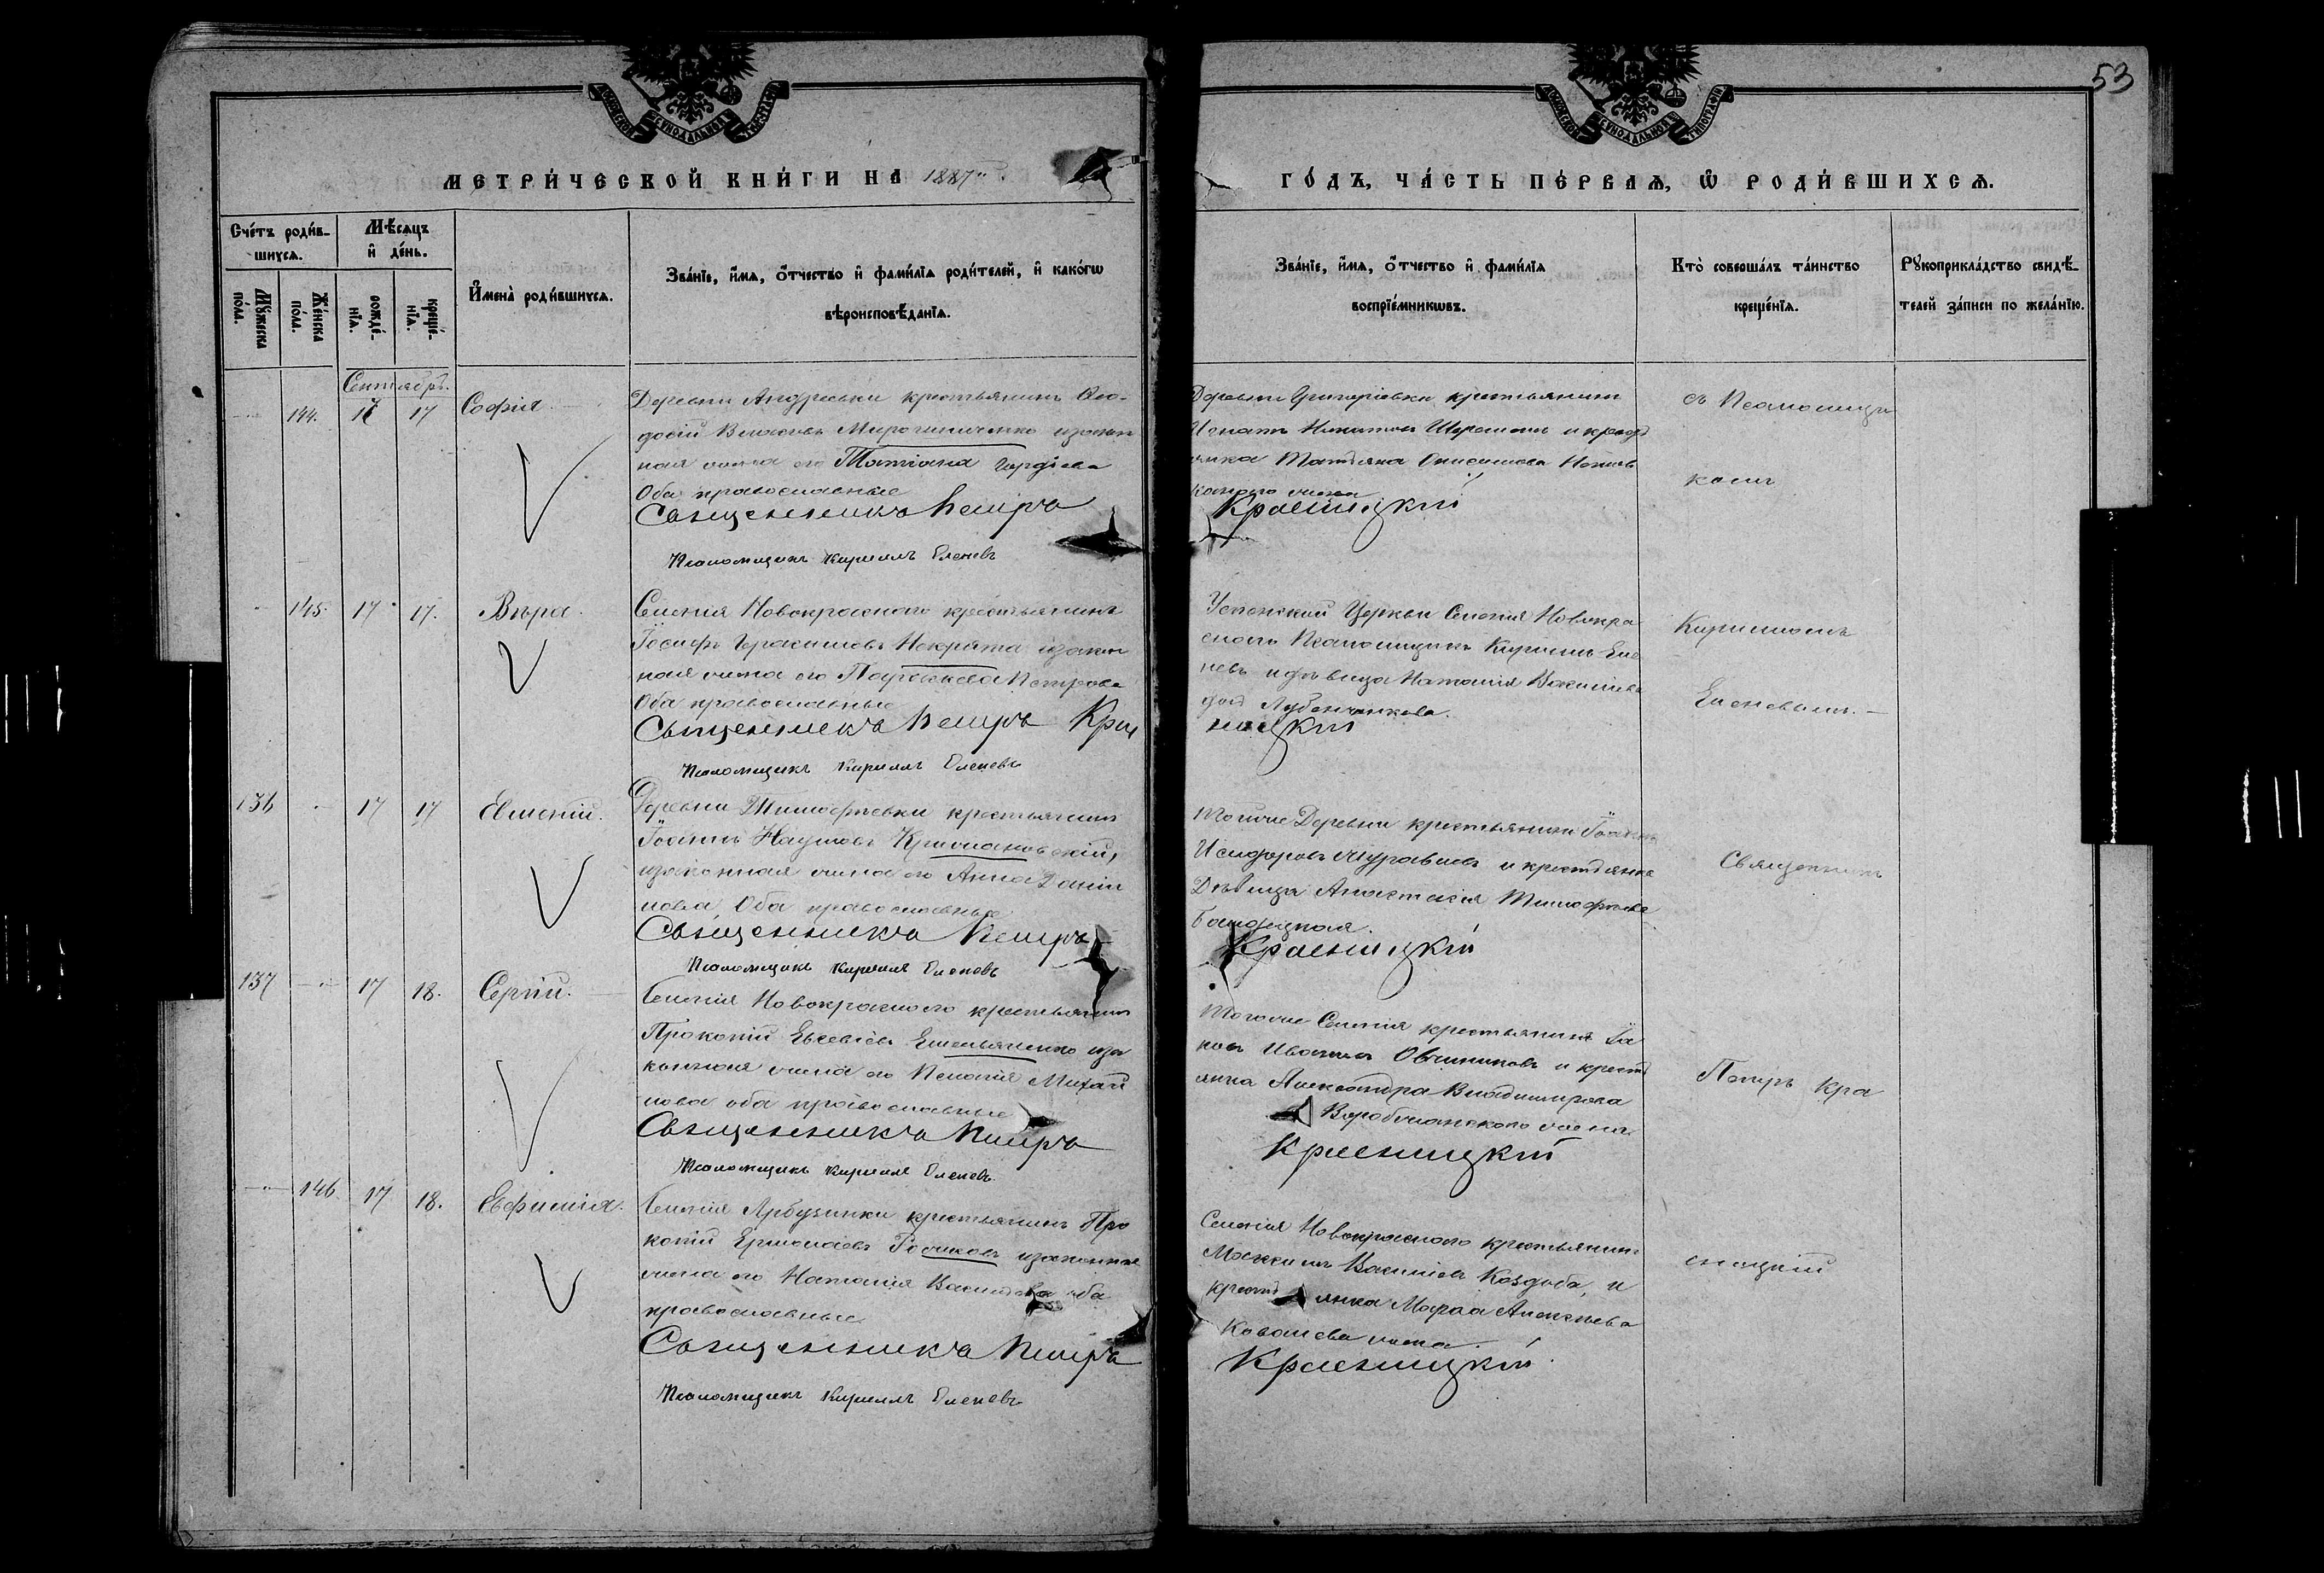 53
МОСКОВСКОЙ СѴНОДАЛЬНОЙ ТИПОГРАФІИ
МОСКОВСКОЙ СѴНОДАЛЬНОЙ ТИПОГРАФІИ
МЕТРИ́ЧЕСКОЙ КНИ́ГИ НА 1887
ГО́ДЪ, ЧА́СТЬ ПЕ́РВАѦ, Ѡ҆ РОДИ́ВШИХСѦ.
Сче́тъ роди́в-
шихсѧ.
Мꙋ́жеска по́ла.
Же́нска по́ла.
Мѣ́сѧцъ
и҆ де́нь.
рожде́-
нїѧ.
креще́-
нїѧ.
И҆мена̀ роди́вшихсѧ.
Зва́нїе, и҆́мѧ, о҆́тчество и҆ фами́лїѧ роди́телей, и҆ како́гѡ
вѣроисповѣ́данїѧ.
Зва́нїе, и҆́мѧ, о҆́тчество и҆ фами́лїѧ
воспрїе́мникѡвъ.
Кто̀ соверша́лъ та́инство
креще́нїѧ.
Рꙋкоприкла́дство свидѣ́-
телей за́писи по жела́нїю.
Сентябрь.
144. 17 17 Софія
Деревни Андреевки крестьянинъ Ѳео-
досій Власовъ Мирошниченко и закон
ная жена его Татіана Гордіева
Оба православные
Священникъ Петръ
Псаломщикъ Кириллъ Еленевъ
Деревни Григоріевки крестьянинъ
Игнатъ Никитинъ и крестья
янка Татіяна Онисимова
жена
Красницкій
съ Псаломщи
комъ
145. 17 17. Вѣра.
Селенія Новокраснаго крестьянинъ
Іосифъ Герасимовъ Некрята и закон
ная жена его Параскева Петрова
Оба православные
Священникъ Петръ Крас
Псаломщикъ Кириллъ Еленевъ
Успенской Церкви Селенія Новокра
снаго Псаломщикъ Кириллъ Еле
невъ и дѣвица Наталія Василіева
Лубенченкова.
ницкій
Кирилломъ
Еленевымъ.
136 17 17 Евменій.
Деревни Тимофѣевки крестьянинъ
Іоаннъ Наумовъ Крыжановскій,
и законная жена его Анна Даніи
лова, Оба православные
Священникъ Петръ
Псаломщикъ Кириллъ Еленевъ
Тойже Деревни крестьянинъ Іоаннъ
Исидоровъ Журавлевъ и крестьянка
Дѣвица Анастасія Тимофѣева
Красницкій
Священникъ
137 17 18. Сергій.
Селенія Новокраснаго крестьянинъ
Прокопій Евсевіевъ Емельяненко и за
конная жена его Пелагія Михай
лова оба православные
Священникъ Петръ
Псаломщикъ Кириллъ Еленевъ
Тогоже Селенія крестьянинъ Іа
ковъ Ивановъ Овчинниковъ и крестья
янка Александра Владимирова
жена
Красницкій
Петръ Кра
146. 17 18. Евфимія.
Селенія Арбузинки крестьянинъ Про
копій Ермолаевъ и законная
жена его Наталія Василіева оба
православные
Священникъ Петръ
Псаломщикъ Кириллъ Еленевъ
Селенія Новокраснаго крестьянинъ
Максимъ Василіевъ Коздоба, и
крестьянка Марѳа Алексѣева
Ковалева жена.
Красницкій
сницкій